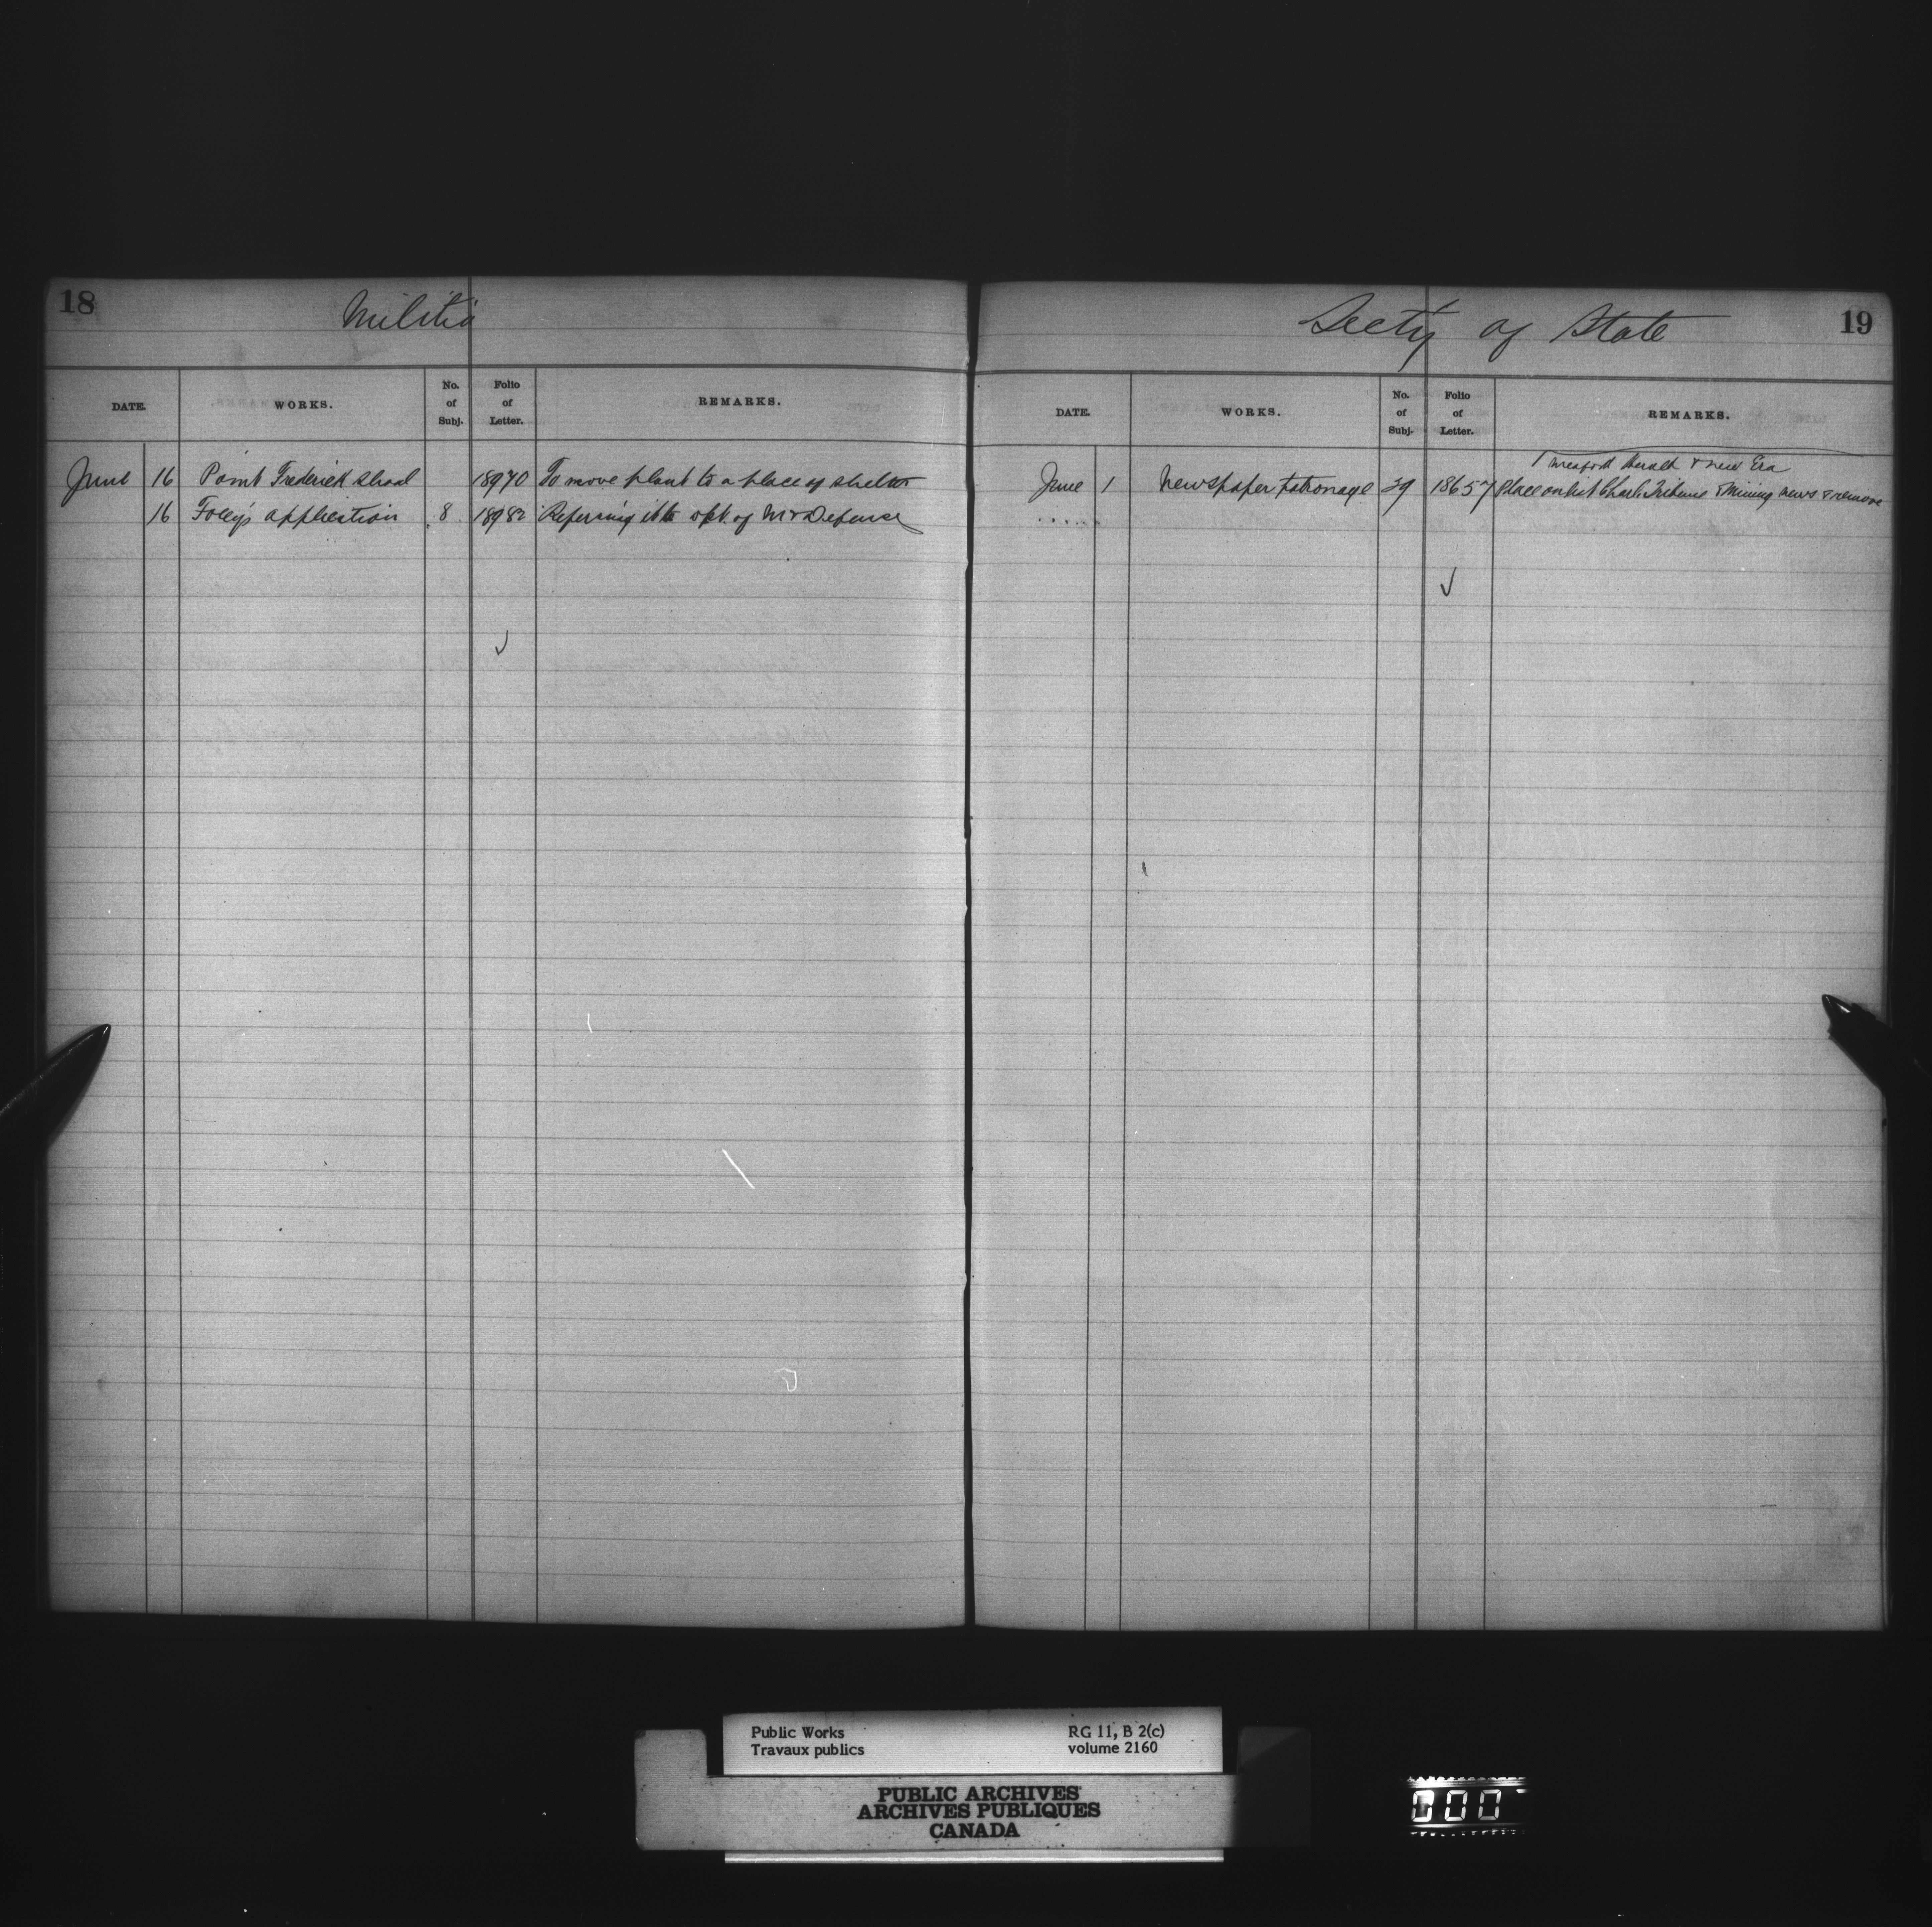 18
Militia
DATE. WORKS. No. of Subj. Folio of Letter. REMARKS.
June 16 Point Frederick Shoal 18970 To move plant to a place of shelter
16 Foley's application 8 18982 Referring it to dpt. of M & Defense
19
Secty of State
DATE. WORKS. No. of Subj. Folio of Letter. REMARKS.
Meaford Herald & New Era
June 1 Newspaper patronage 39 18657 Place on list Tribune & Mining News & remove
Public Works RG 11, B 2(c)
Travaux publics volume 2160
PUBLIC ARCHIVES
ARCHIVES PUBLIQUES
CANADA